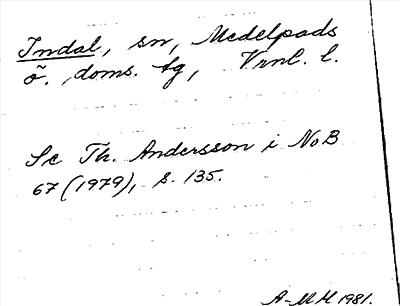 Indal, sn, Medelpads
ö. doms. tg, Vrnl. l.
Se Th. Andersson i NoB
67 (1979), s. 135.
A-MH 1981.